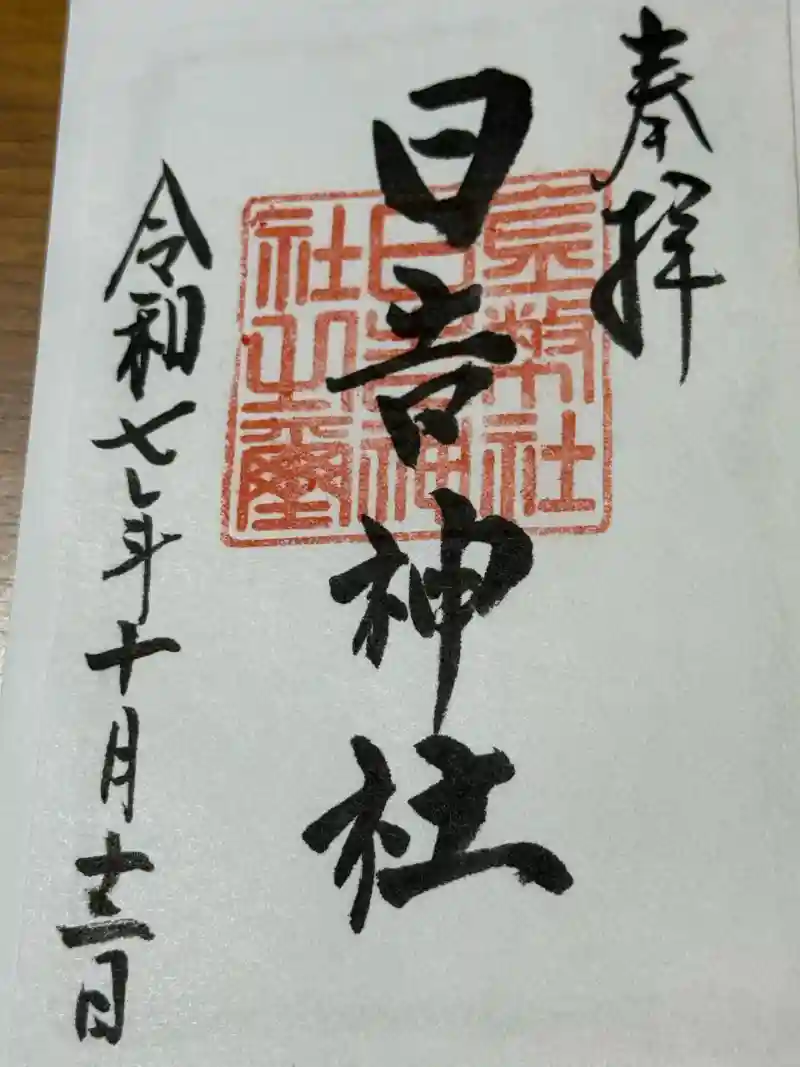 奉拝
日吉神社
令和七年十月十二日
幣社
日吉神
社之璽